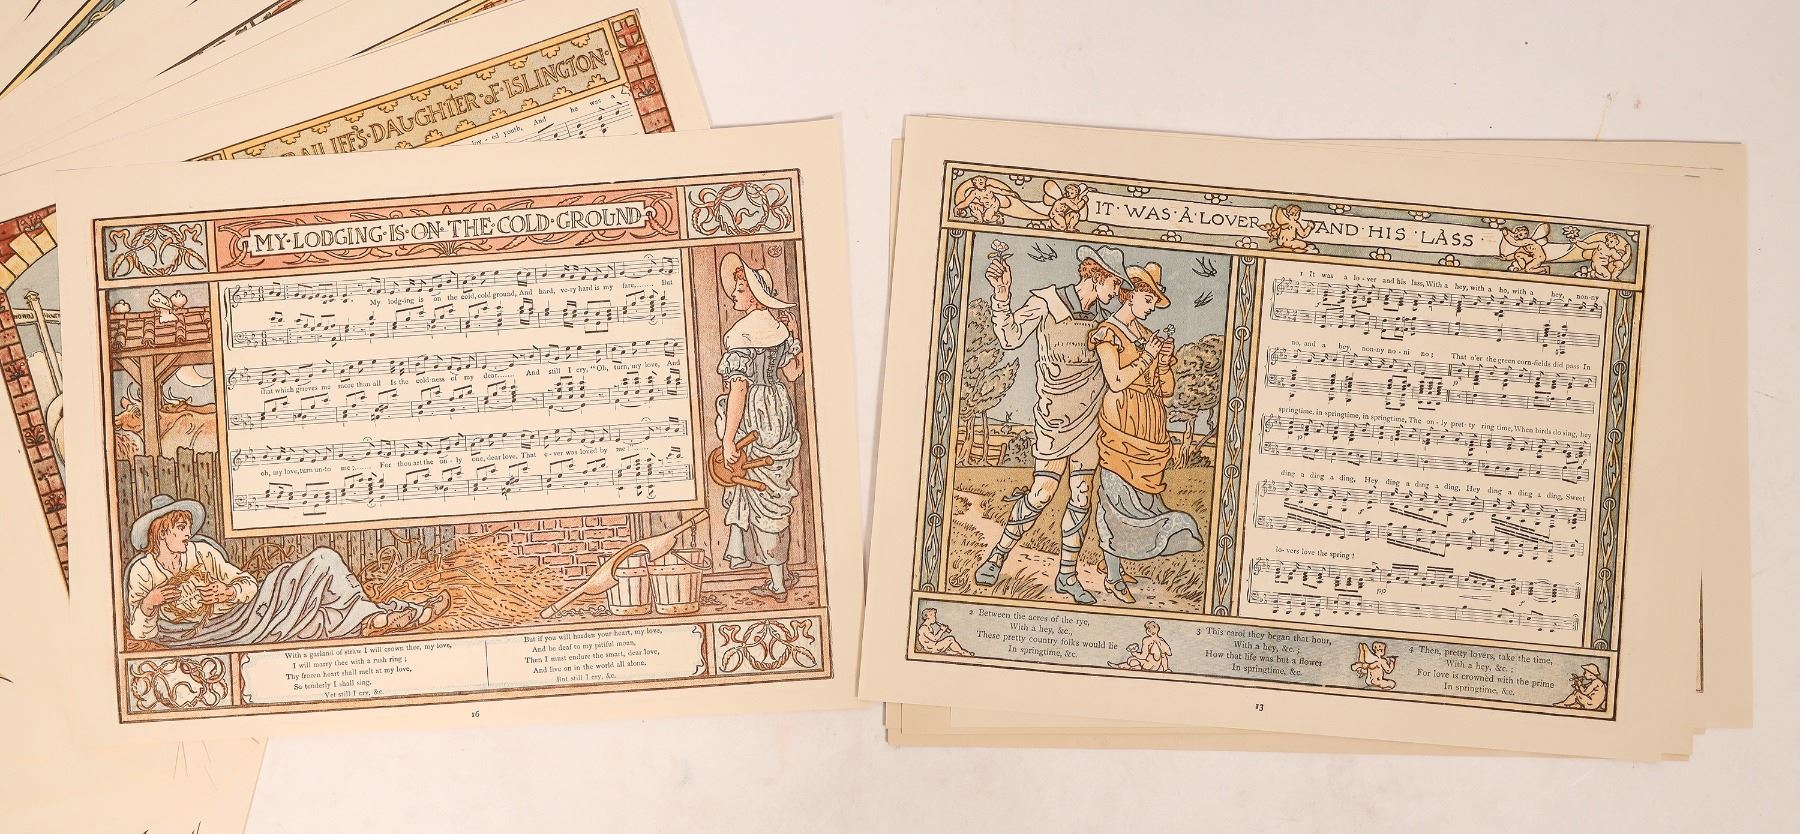 BAILIFF'S · DAUGHTER · of · ISLINGTON ·
he was a
ed youth, And
MY · LODGING · IS · ON · THE · COLD · GROUND ·
My lodg-ing is on the cold, cold ground, And hard, ve-ry hard is my fare,...... But
that which grieves me more than all Is the cold-ness of my dear....... And still I cry, "Oh, turn, my love, And
oh, my love, turn un-to me;...... For thou art the on - ly one, dear love, That e - ver was loved by me!"......
With a garland of straw I will crown thee, my love,
I will marry thee with a rush ring;
Thy frozen heart shall melt at my love,
So tenderly I shall sing.
Yet still I cry, &c.
But if you will harden your heart, my love,
And be deaf to my pitiful moan,
Then I must endure the smart, dear love,
And live on in the world all alone.
But still I cry, &c.
16
IT · WAS · A · LOVER AND · HIS · LASS ·
1 It was a lo - ver and his lass, With a hey, with a ho, with a hey, non-ny
no, and a hey, non-ny no - ni no; That o'er the green corn-fields did pass In
springtime, in springtime, in springtime, The on - ly pret - ty ring time, When birds do sing, hey
ding a ding a ding, Hey ding a ding a ding, Hey ding a ding a ding, Sweet
lo-vers love the spring!
2 Between the acres of the rye,
With a hey, &c.,
These pretty country folks would lie
In springtime, &c.
3 This carol they began that hour,
With a hey, &c.;
How that life was but a flower
In springtime, &c.
4 Then, pretty lovers, take the time,
With a hey, &c.;
For love is crownèd with the prime
In springtime, &c.
13